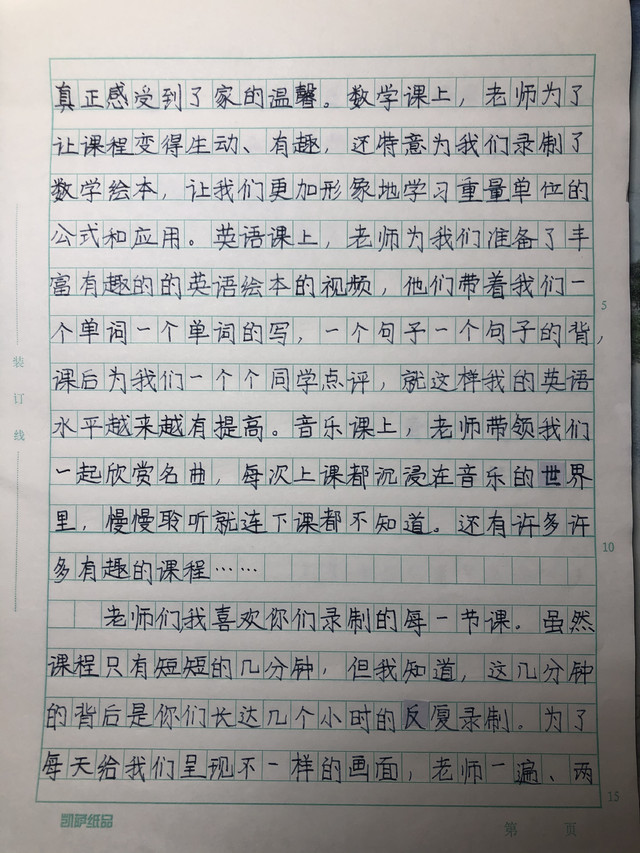 真正感受到了家的温馨。数学课上，老师为了
让课程变得生动、有趣，还特意为我们录制了
数学绘本，让我们更加形象地学习重量单位的
公式和应用。英语课上，老师为我们准备了丰
富有趣的的英语绘本的视频，他们带着我们一
5
个单词一个单词的写，一个句子一个句子的背，
课后为我们一个个同学点评，就这样我的英语
水平越来越有提高。音乐课上，老师带领我们
一起欣赏名曲，每次上课都沉浸在音乐的世界
里，慢慢聆听就连下课都不知道。还有许多许
10
多有趣的课程……
老师们我喜欢你们录制的每一节课。虽然
课程只有短短的几分钟，但我知道，这几分钟
的背后是你们长达几个小时的反复录制。为了
每天给我们呈现不一样的画面，老师一遍、两
15
装订线
凯萨纸品
第 页